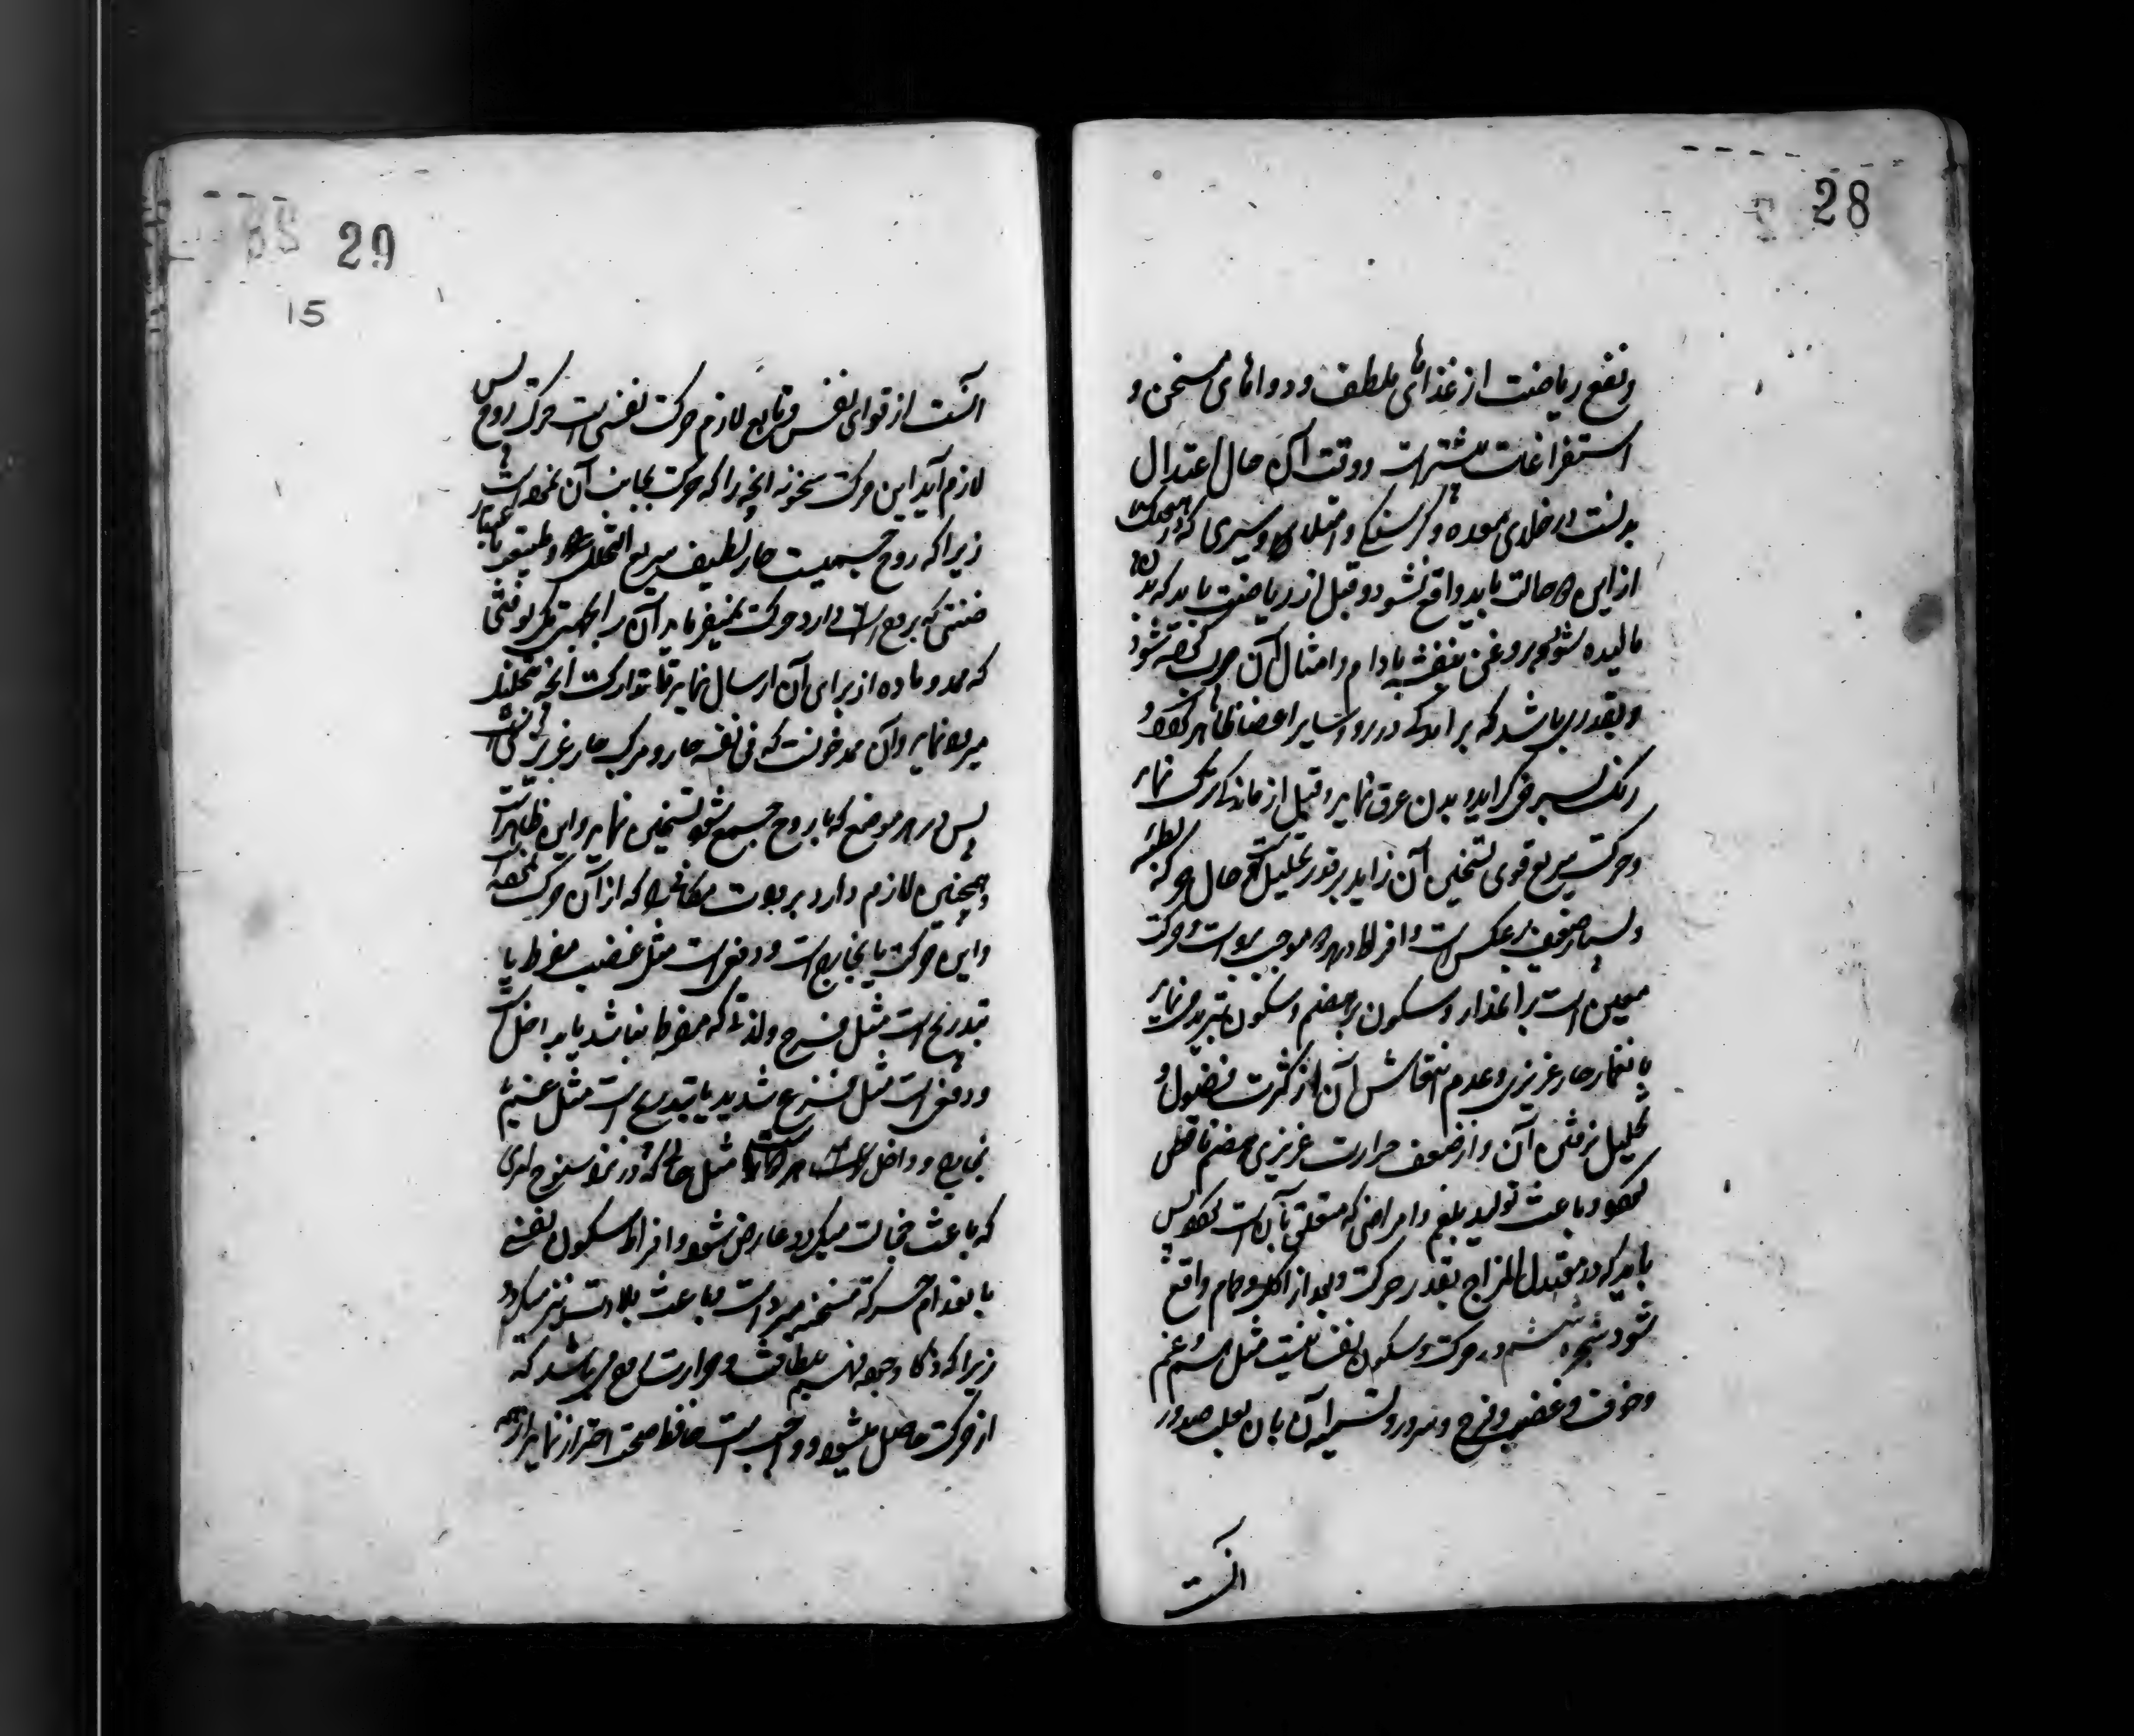 28
و نفع ریاضت از غذاهای ملطف و دواهای مسخن و
استفراغات بیشتر است و وقت آن حال اعتدال
بدنست در خلای معده و گرسنگی و امتلا و سیری که در هیچ یک
از این دو حالت باید واقع نشود و قبل از ریاضت باید که بدن
مالیده شود و بروغن بنفشه بادام و امثال آن چرب کرده شود
و بقدری باشد که برآمدگی در رو و سایر اعضا ظاهر گردد و
رنگ بسرخی گراید و بدن عرق نماید و قبل از ماندگی ترک نماید
و حرکت سریع قوی تسخین آن زاید بر قدر تحلیل است حال حرکه بطئه
و بسیار ضعیف برعکس است و افراط هر دو موجب برودت و حرکت
معین است بر انحدار و سکون بر هضم و سکون تبرید می نماید
با نغمار حار غریزی و عدم انتعاش آن از کثرت فضول و
تحلیل نرفتن آن و از ضعف حرارت غریزی هضم ناقص
گردد و باعث تولید بلغم و امراضی که متعلق بآن است گردد پس
باید که در معتدل المزاج بقدر حرکت و بعد از اکل و حمام واقع
شود شجره ششم در حرکت و سکون نفسانیت مثل هم و غم
و خوف و غضب و فرح و سرور و تسمیه آن بآن بعلت صدور
انست
29
15
آنست از قوای نفس و تابع لازم حرکت نفسی است حرکت روح پس
لازم آید این حرکت سخونه آنچه را که حرکت بجانب آن نموده است
زیرا که روح جسمیت حار لطیف سریع التحلل و طبیعت باعتبار
ضنتی که بروح است دارد حرکت نمیفرماید آن را بجهتی مگر بوقتی
که ممد و ماده از برای آن ارسال نماید تا تدارک آنچه تحلیل
میرود نماید و آن ممد خونست که فی نفسه حار و مرکب حار غریزی است
پس در هر موضع که با روح جمع شود تسخین نماید و این ظاهر است
و همچنین لازم دارد برودت مکانی را که از آن حرکت نموده
و این حرکت یا بخارج است و دفعی است مثل غضب مفرط یا
بتدریج است مثل فرح و لذتی که مفرط نباشد یا بداخل است
و دفعی است مثل فزع شدید یا بتدریج است مثل غم یا
بخارج و داخل است مثل حالی که در نزد سنوح امری
که باعث خجالت میگردد عارض شود و افراط سکون نفسی
با نعدام حرکه مسخنه مبرد است و باعث بلادت نیز میگردد
زیرا که ذکا و جوده فهم بلطافت و حرارت روح می باشد که
از حرکت حاصل میشود و واجب است حافظ صحت احتراز نماید از همه